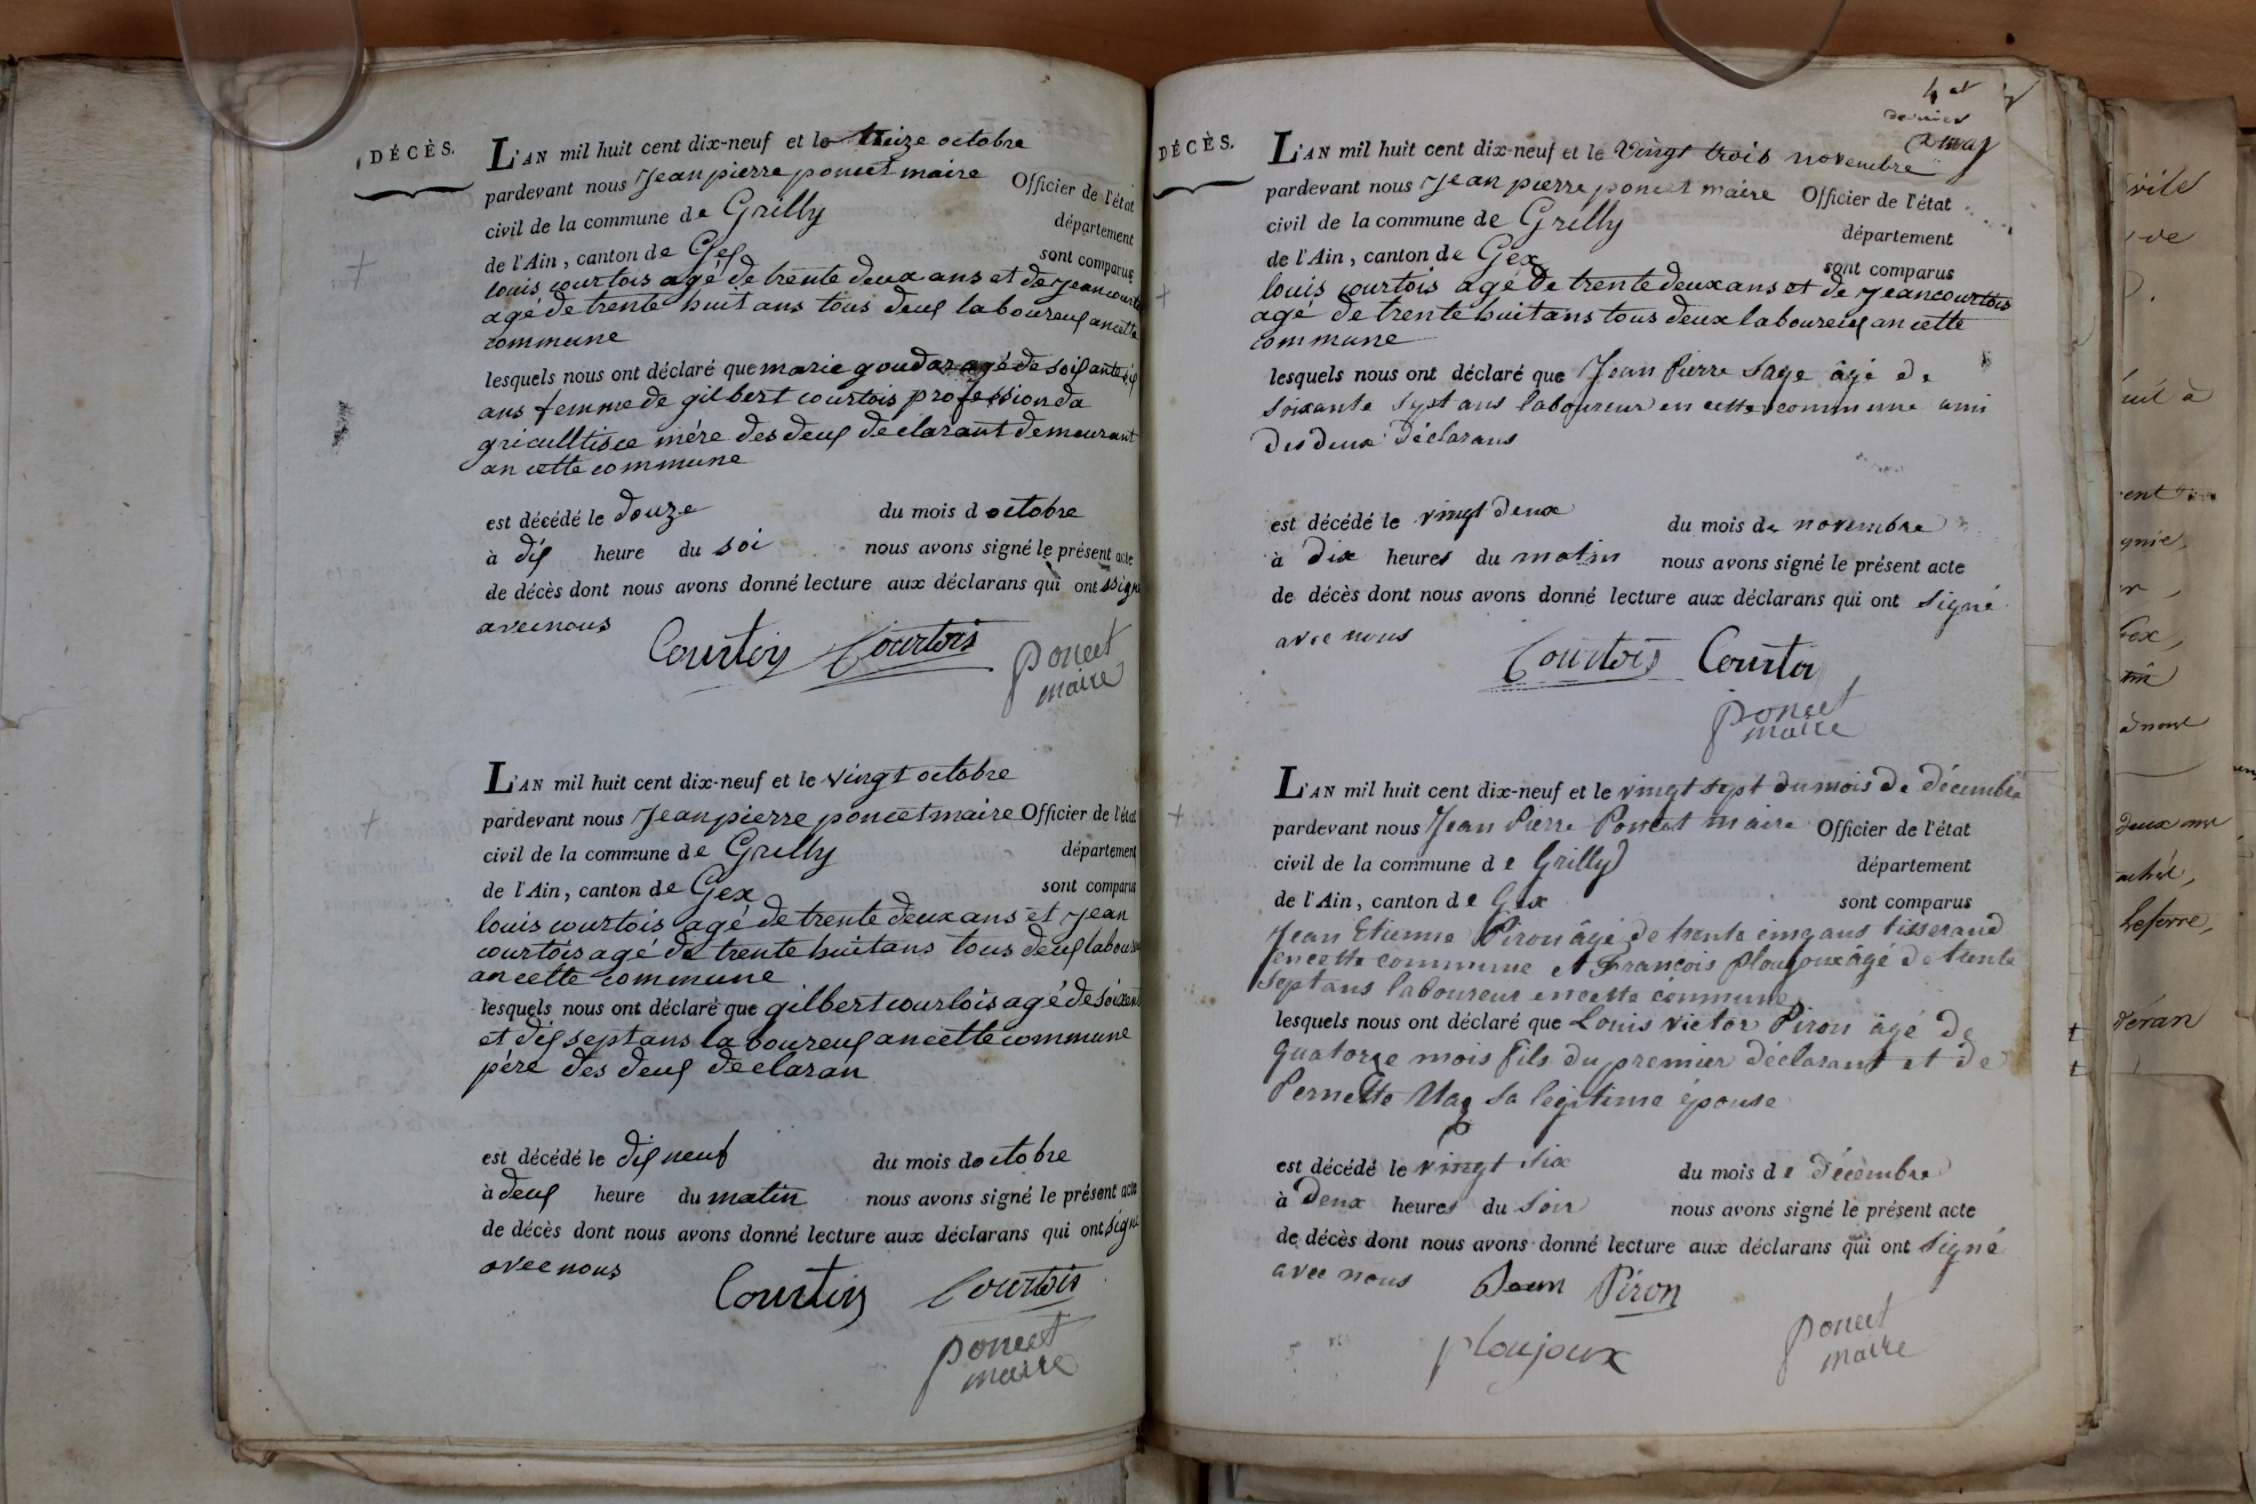 DÉCÈS.
L'AN mil huit cent dix-neuf et le treize octobre
pardevant nous Jean pierre poncet maire Officier de l'état
civil de la commune de Grilly département
de l'Ain, canton de Gex sont comparus
louis courtois agé de trente deux ans et de jean courtois
agé de trente huit ans tous deux laboureux an cette
commune
lesquels nous ont déclaré que marie goudar agé de soixante six
ans femme de gilbert courtois profession da
gricultisce mére des deux déclarant demeurant
an cette commune
est décédé le douze du mois d octobre
à dix heure du soi nous avons signé le présent acte
de décès dont nous avons donné lecture aux déclarans qui ont ssigné
avec nous
Courtois Courtois poncet
maire
L'AN mil huit cent dix-neuf et le vingt octobre
pardevant nous Jean pierre poncet maire Officier de l'état
civil de la commune de Grilly département
de l'Ain, canton de Gex sont comparus
louis courtois agé de trente deux ans et jean
courtois agé de trente huit ans tous deux laboureux
an cette commune
lesquels nous ont déclaré que gilbert courtois agé de soixent
et dix sept ans laboureux an cette commune
pére des deux déclaran
est décédé le dix neuf du mois doctobre
à deux heure du matin nous avons signé le présent acte
de décès dont nous avons donné lecture aux déclarans qui ont signé
avec nous
Courtois Courtois
poncet
maire
4 et
dernier
DÉCÈS.
L'AN mil huit cent dix-neuf et le vingt trois novembre
pardevant nous Jean pierre poncet maire Officier de l'état
civil de la commune de Grilly département
de l'Ain, canton de Gex sont comparus
louis courtois agé de trente deux ans et de jean courtois
agé de trente huit ans tous deux laboureux an cette
commune
lesquels nous ont déclaré que Jean Pierre Sage âgé de
soixante sept ans laboureur en cette commune ami
des deux déclarans
est décédé le vingt deux du mois de novembre
à dix heures du matin nous avons signé le présent acte
de décès dont nous avons donné lecture aux déclarans qui ont signé
avec nous
Courtois Courtois
poncet
maire
L'AN mil huit cent dix-neuf et le vingt sept du mois de décembre
pardevant nous Jean Pierre Poncet maire Officier de l'état
civil de la commune de Grilly département
de l'Ain, canton de Gex sont comparus
Jean Etienne Piron âgé de trente cinq ans tisserand
en cette commune et François Ploujoux âgé de trente
sept ans laboureur en cette commune
lesquels nous ont déclaré que Louis victor Piron âgé de
quatorze mois fils du premier déclarant et de
Pernette sa legitime épouse
est décédé le vingt six du mois de décembre
à deux heures du soir nous avons signé le présent acte
de décès dont nous avons donné lecture aux déclarans qui ont signé
avec nous Jean Piron
ploujoux poncet
maire